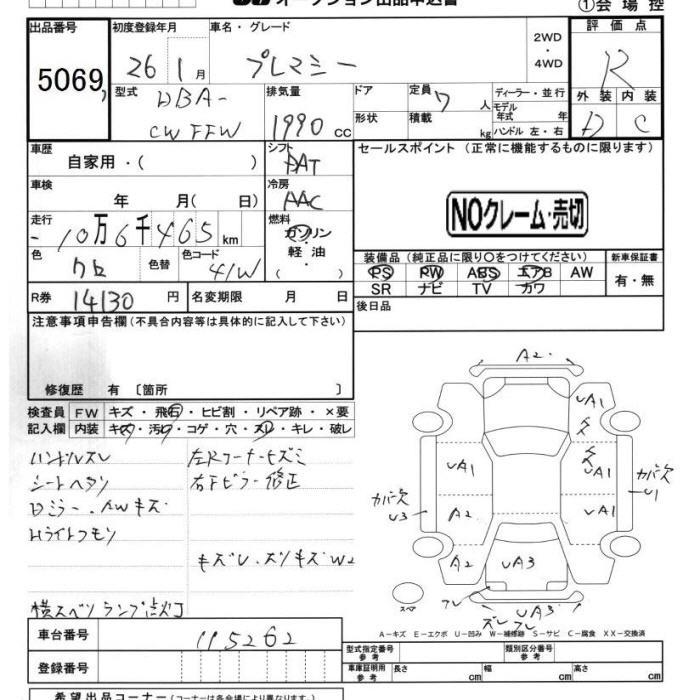 オークション出品申込書
①会場控
出品番号 初度登録年月 車名・グレード 2WD・4WD 評価点
5069 26 1月 プレマシー R
型式 DBA-CWFFW 排気量 1990 cc
ドア 定員 7 人 ディーラー・並行
モデル年式 年
形状 積載 kg ハンドル 左・右
外装 内装
D C
車歴 自家用・( )
シフト
セールスポイント (正常に機能するものに限ります)
車検 年 月( 日)
冷房 AAC
NOクレーム・売切
走行 10万6千465 km
燃料 ガソリン・軽油・( )
装備品 (純正品に限り○をつけてください) 新車保証書
PS PW ABS エアB AW 有・無
SR ナビ TV カワ
色 クロ 色替 色コード 41W
R券 14130 円 名変期限 月 日
後日品
注意事項申告欄 (不具合内容等は具体的に記入して下さい)
修復歴 有 〔箇所 〕
検査員記入欄 FW キズ・飛石・ヒビ割・リペア跡・×要
内装 キズ・汚レ・コゲ・穴・スレ・キレ・破レ
ハンドルスレ
シートヘタリ
Dミラー、AWキズ
Hライトクモリ
左Rコーナーヒズミ
右Fピラー修正
キズし、ズリキズW2
横スベリランプ点灯
A2
UA1
UA1
UA1
A2
UA1
A2
UA3
カバー欠 U3
カバー欠 U1
フレ UA3
ズレフレ
スペア
A-キズ E-エクボ U-凹み W-補修跡 S-サビ C-腐食 XX-交換済
車台番号 115262
登録番号
型式指定番号 参考 類別区分番号 参考
車庫証明用 参考 長さ cm 幅 cm 高さ cm
希望出品コーナー (コーナーは各会場により異なります)